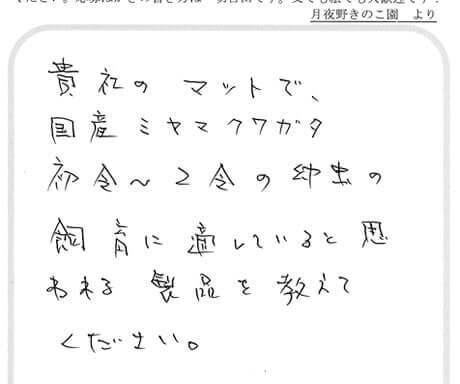 月夜野きのこ園 より
貴社の マットで、
国産ミヤマクワガタ
初令～2令の幼虫の
飼育に適していると思
われる 製品を教えて
ください。